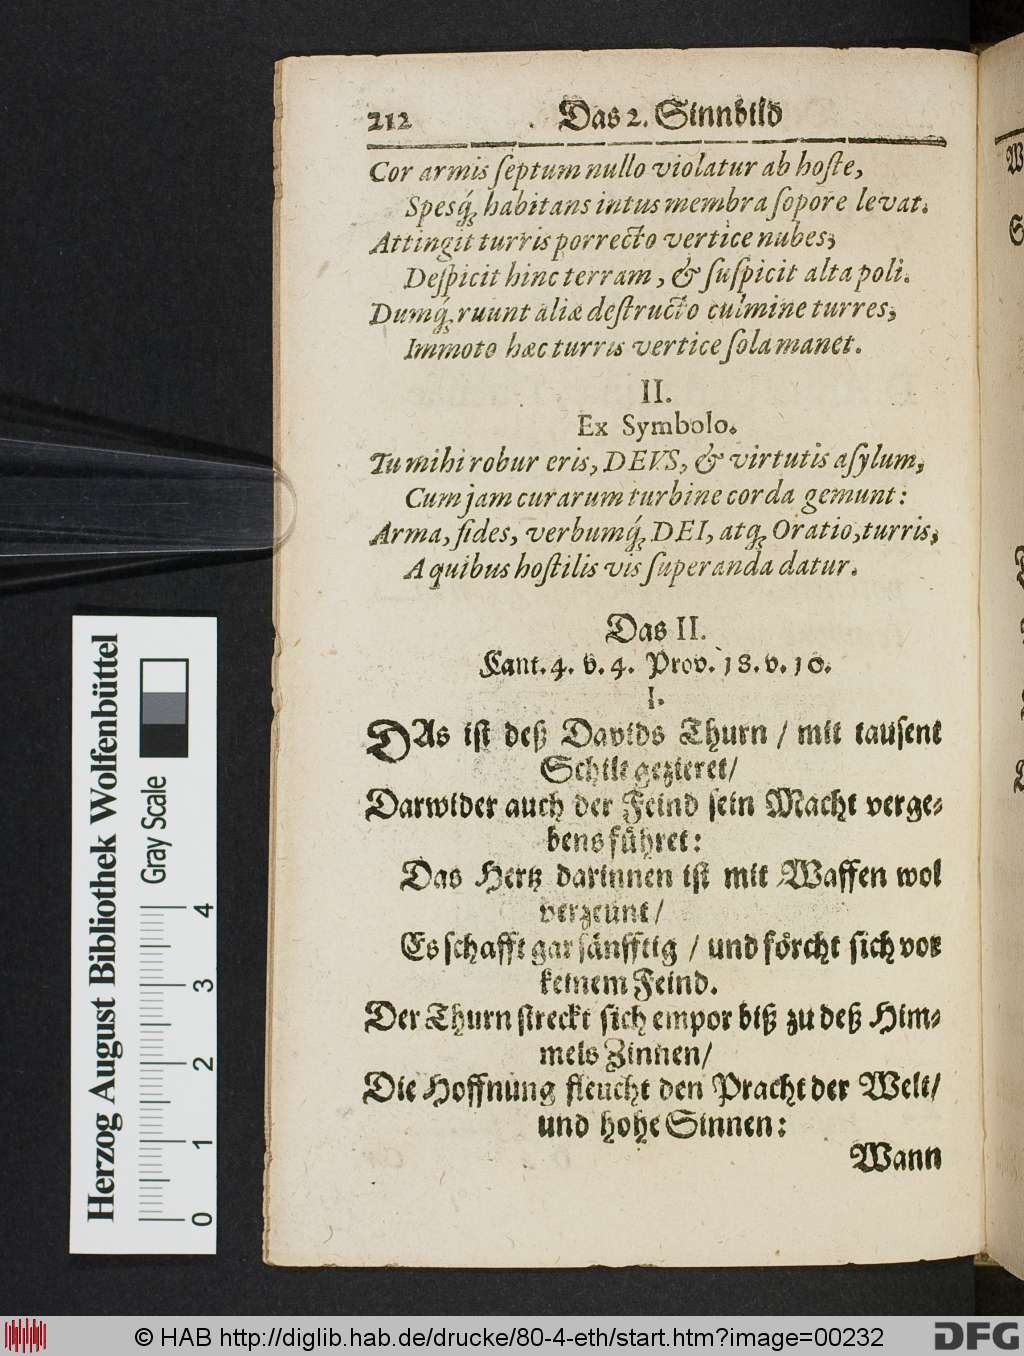 212 Das 2. Sinnbild
Cor armis ſeptum nullo violatur ab hoſte,
Spesq́; habitans intus membra ſopore levat.
Attingit turris porrecto vertice nubes;
Deſpicit hinc terram, & ſuſpicit alta poli.
Dumq́; ruunt aliæ deſtructo culmine turres;
Immoto hæc turris vertice ſola manet.
II.
Ex Symbolo.
Tu mihi robur eris, DEVS, & virtutis aſylum,
Cum jam curarum turbine corda gemunt:
Arma, fides, verbumq́; DEI, atq; Oratio, turris;
A quibus hoſtilis vis ſuperanda datur.
Das II.
Cant. 4. v. 4. Prov. 18. v. 10.
I.
DAs iſt deß Davids Thurn / mit tauſent
Schilt gezieret/
Darwider auch der Feind ſein Macht verge⸗
bens führet:
Das Hertz darinnen iſt mit Waffen wol
verzeunt/
Es ſchafft gar ſänfftig / und förcht ſich vor
keinem Feind.
Der Thurn ſtreckt ſich empor biß zu deß Him⸗
mels Zinnen/
Die Hoffnung fleucht den Pracht der Welt/
und hohe Sinnen:
Wann
Herzog August Bibliothek Wolfenbüttel
Gray Scale
0 1 2 3 4
© HAB http://diglib.hab.de/drucke/80-4-eth/start.htm?image=00232
DFG